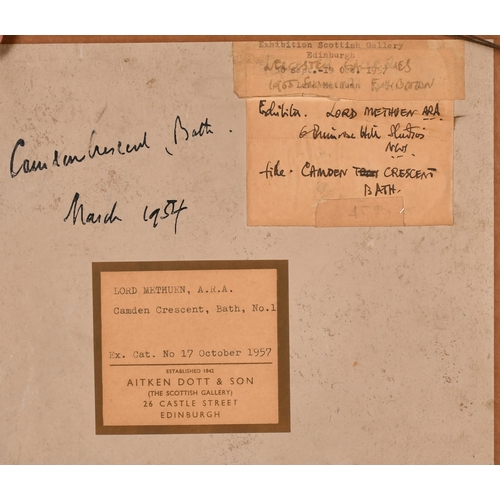 Exhibition Scottish Gallery
Edinburgh
LEICESTER GALLERIES
EXHIBITION
Exhibitor. LORD METHUEN ARA
6 Primrose Hill Studios
NW1
title. CAMDEN CRESCENT
BATH.
Camden Crescent, Bath.
March 1954
LORD METHUEN, A.R.A.
Camden Crescent, Bath, No.1
Ex. Cat. No 17 October 1957
ESTABLISHED 1842
AITKEN DOTT & SON
(THE SCOTTISH GALLERY)
26 CASTLE STREET
EDINBURGH